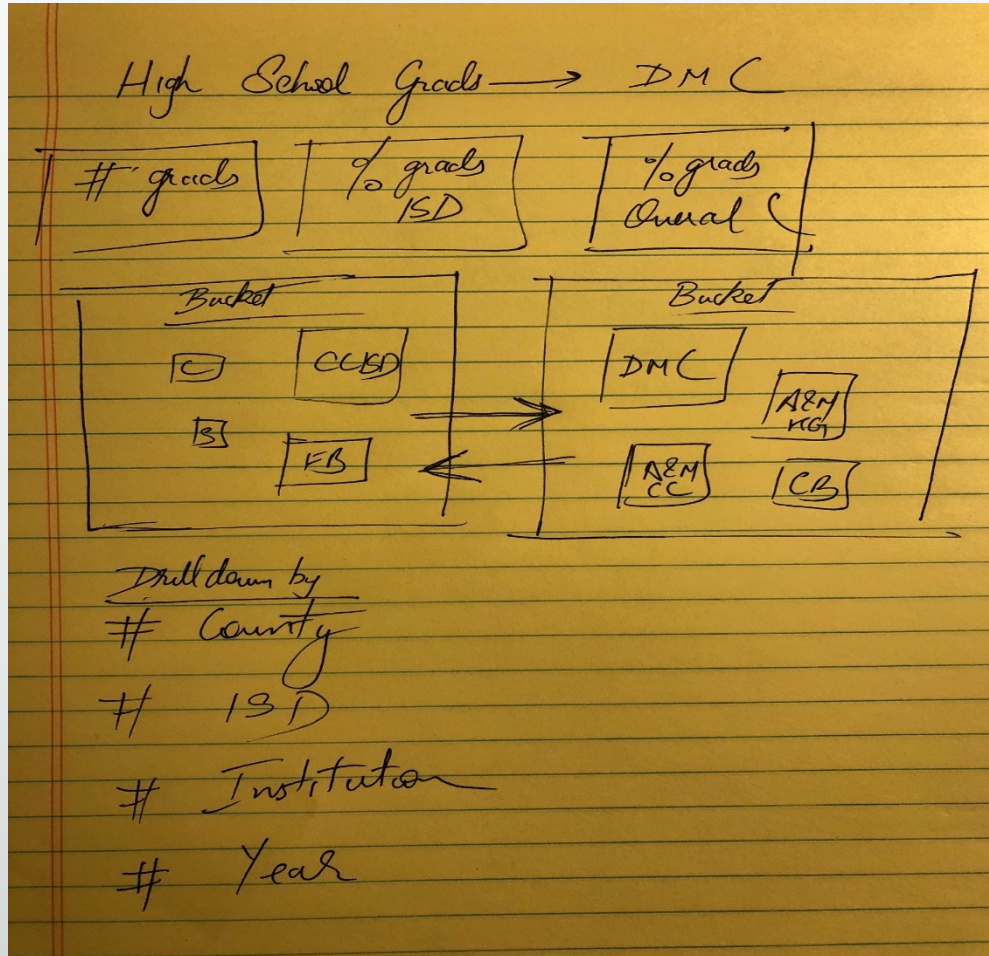 High School Grads → DMC
# grads
% grads
ISD
% grads
Overal
Bucket
C
CCISD
B
FB
Bucket
DMC
A&M
KG
A&M
CC
CB
Drill down by
# County
# ISD
# Institution
# Year